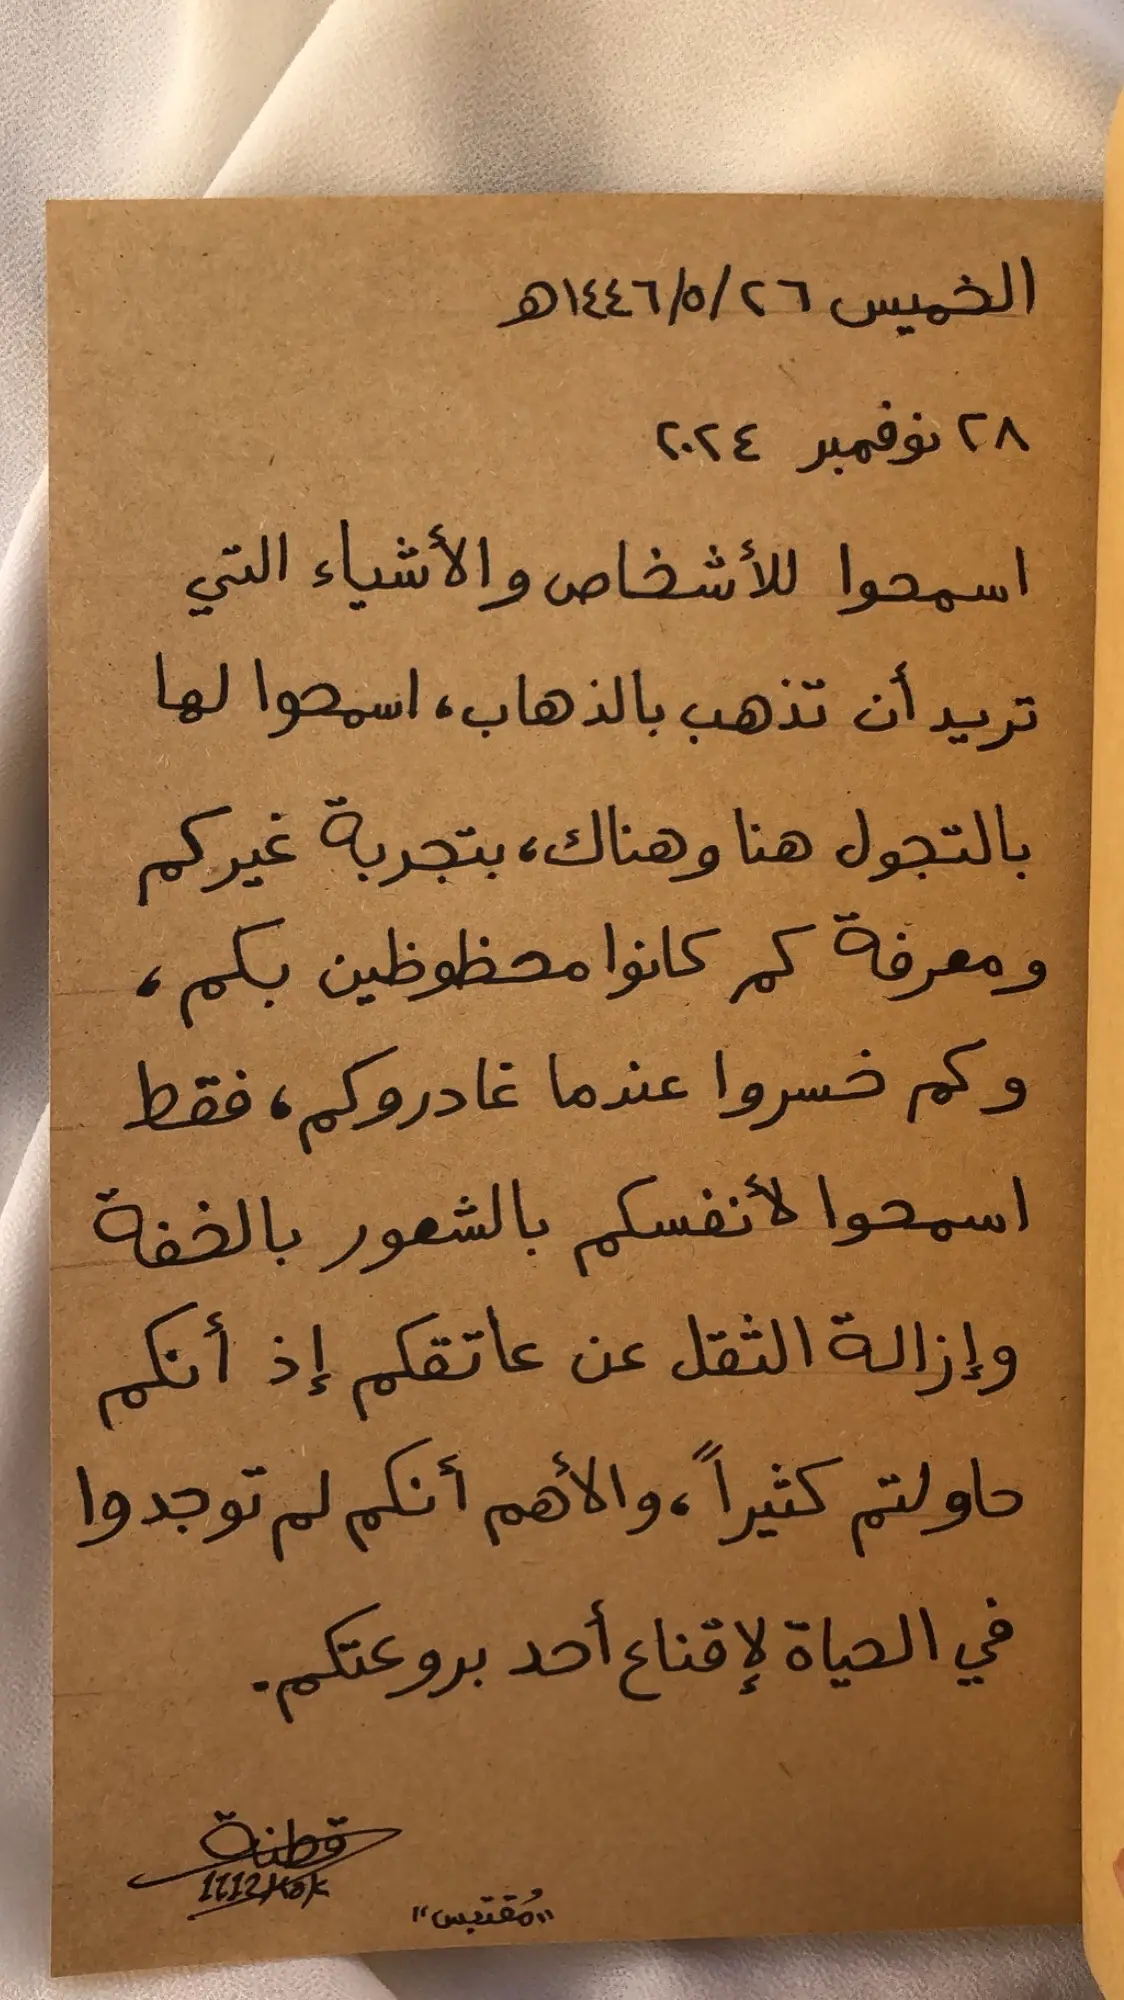 الخميس ٢٦/٥/١٤٤٦هـ
٢٨ نوفمبر ٢٠٢٤
اسمحوا للأشخاص والأشياء التي
تريد أن تذهب بالذهاب، اسمحوا لها
بالتجول هنا وهناك، بتجربة غيركم
ومعرفة كم كانوا محظوظين بكم،
وكم خسروا عندما غادروكم، فقط
اسمحوا لأنفسكم بالشعور بالخفة
وإزالة الثقل عن عاتقكم إذ أنكم
حاولتم كثيراً، والأهم أنكم لم توجدوا
في الحياة لإقناع أحد بروعتكم.
قطنة
"مُقتبس"